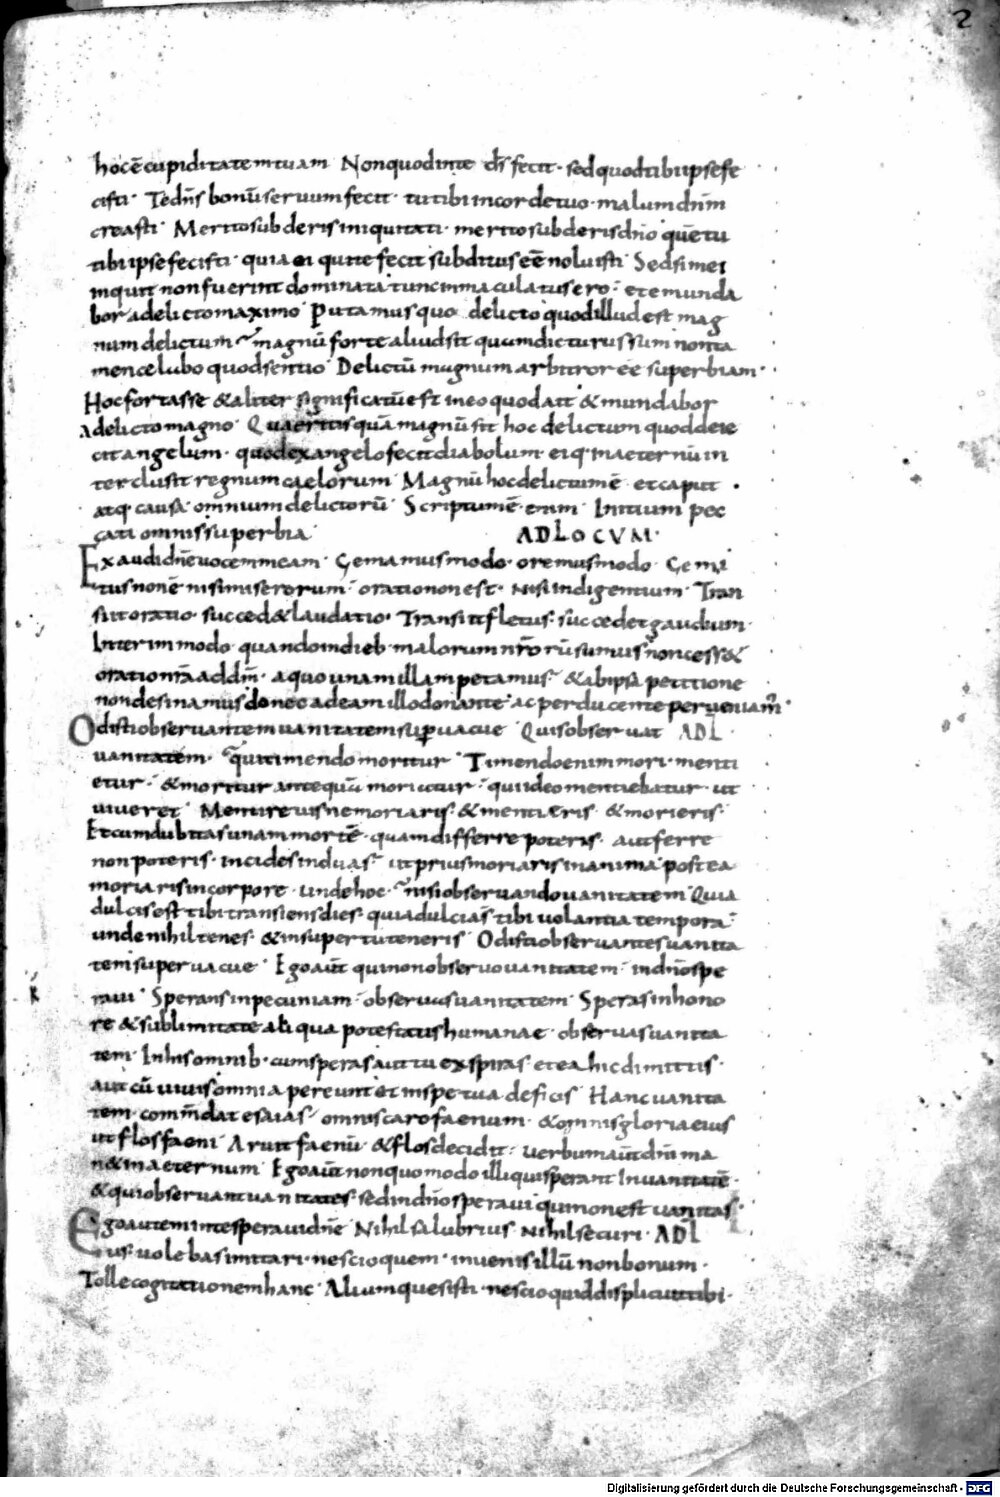 2
hoc ē cupiditatem tuam Non quod in te d̄s fecit · sed quod tibi ipse fe
cisti · Te dn̄s bonū seruum fecit · tu tibi in corde tuo · malum dn̄m
creasti · Merito subderis iniquitati · merito subderis dn̄o quē tu
tibi ipse fecisti · quia ei qui te fecit subditus eē noluisti Sed si mei
inquit non fuerint dominata tunc inmaculatus ero · et emunda
bor a delicto maximo Putamus quo delicto quod illud est mag
num delictum magnū forte aliud sit quam dicturus sum non ta
men celabo quod sentio · Delictū magnum arbitror eē superbiam ·
Hoc fortasse & aliter significatū est in eo quod ait & mundabor
a delicto magno · Quaeritis quā magnū sit hoc delictum quod deie
cit angelum · quod ex angelo fecit diabolum · eiq· in aeternū in
terclusit regnum caelorum · Magnū hoc delictum ē · et caput ·
atq· causa · omnium delictorū · Scriptum ē · enim · Initium pec
cati omnis superbia ·
AD LOCVM ·
Exaudi dn̄e uocem meam · Gemamus modo · oremus modo · Gemi
tus non ē nisi miserorum · oratio non est · nisi indigentium · Tran
siit oratio · succed& laudatio · Transiit fletus · succedet gaudium ·
Interim modo · quando in dieb· malorum nr̄orū sumus · non cess&
oratio nr̄a ad dm̄ · a quo unam illam petamus · & ab ipsa petitione
non desinamus donec ad eam illo donante · ac perducente perueniam̄ ·
Odisti obseruantem uanitatem superuacue Quis obseruat AD L̄ ·
uanitatem · qui timendo moritur · Timendo enim mori · menti
etur · & moritur antequā moriatur · qui ideo mentiebatur · ut
uiueret Mentire uis ne moriaris · & mentieris · & morieris ·
Et cum dubitas unam mortē · quam differre poteris · auferre
non poteris · incides in duas · ut prius moriaris in anima · postea
moriaris in corpore · unde hoc · nisi obseruando uanitatem Quia
dulcis est tibi transiens dies · quia dulcia s̄ tibi uolantia tempora ·
unde nihil tenes · & insuper tu teneris · Odisti obseruantes uanita
tem superuacue · Ego aūt qui non obseruo uanitatem · in dn̄o spe
raui · Sperans in pecuniam · obseruas uanitatem · Speras in hono
re & sublimitate aliqua potestatis humanae · obseruas uanita
tem · In his omnib· cum speras aut tu exspiras · et ea hic dimittis ·
aut cū uiuis omnia pereunt et in spe tua deficis Hanc uanita
tem · commēdat esaias · omnis caro faenum · & omnis gloria eius
ut flos faeni · Aruit faenū · & flos decidit · uerbum aūt dn̄i ma
n& in aeternum · Ego aūt non quomodo illi qui sperant in uanitatē ·
& qui obseruant uanitates · sed in dn̄o speraui qui non est uanitas ·
Ego autem in te speraui dn̄e · Nihil salubrius · nihil securi · AD L̄
us · uolebas imitari · nescio quem · inuenis illū non bonum ·
Tolle cogitationem hanc · Alium quesisti · nescio quid displicuit tibi ·
Digitalisierung gefördert durch die Deutsche Forschungsgemeinschaft - DFG